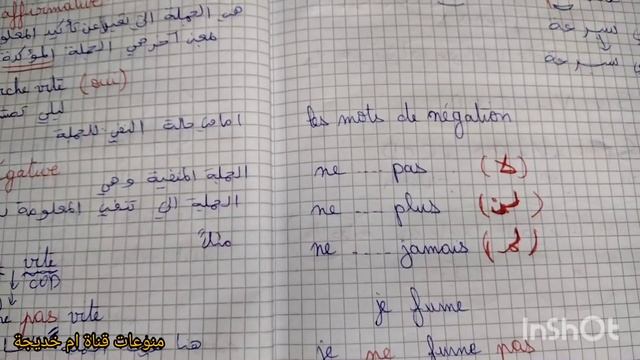 affirmative
هي الجملة التي تعبر عن تأكيد
آخر هي الجملة المؤكدة
vite (oui)
اما حالة النفي للجملة
négative
الجملة المنفية وهي
الجملة التي تنفي المعلومة
مثلا
vite
COD
pas vite
les mots de négation
ne .... pas (لا)
ne .... plus (لن)
ne .... jamais (لم)
je fume
je ne fume pas
منوعات قناة ام خديجة
InShOt